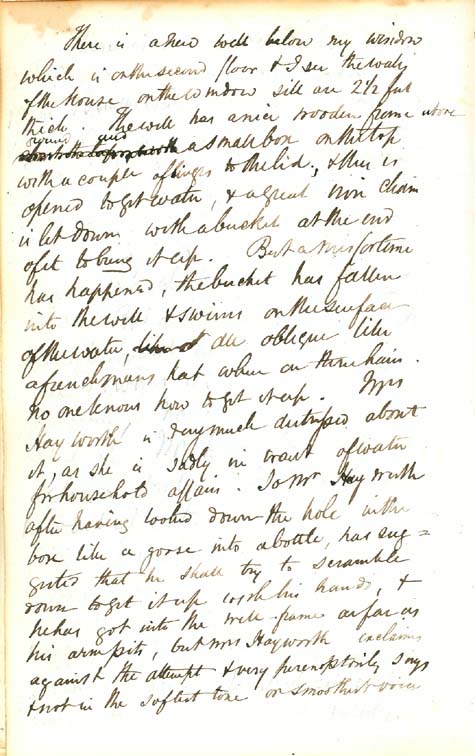 There is a new well below my window
which is on the second floor & I see the walls
of the house on the window sill are 2 1/2 feet
thick. The well has a nice wooden frame above
ground and
a small box on the top
with a couple of hinges to the lid, & this is
opened to get water, & a great iron chain
is let down with a bucket at the end
of it to bring it up. But a misfortune
has happened, the bucket has fallen
into the well & swims on the surface
of the water, all oblique like
a frenchmans hat when on three hairs.
no one knows how to get it up. Mrs
Hayworth is very much distressed about
it, as she is sadly in want of water
for household affairs. So Mr Hayworth
after having looked down the hole in the
box like a goose into a bottle, has sug=
gested that he shall try to scramble
down to get it up with his hands, &
he has got into the well-frame as far as
his armpits, but Mrs Hayworth exclaims
against the attempt & very peremptorily says
& not in the softest tone or smoothest voice